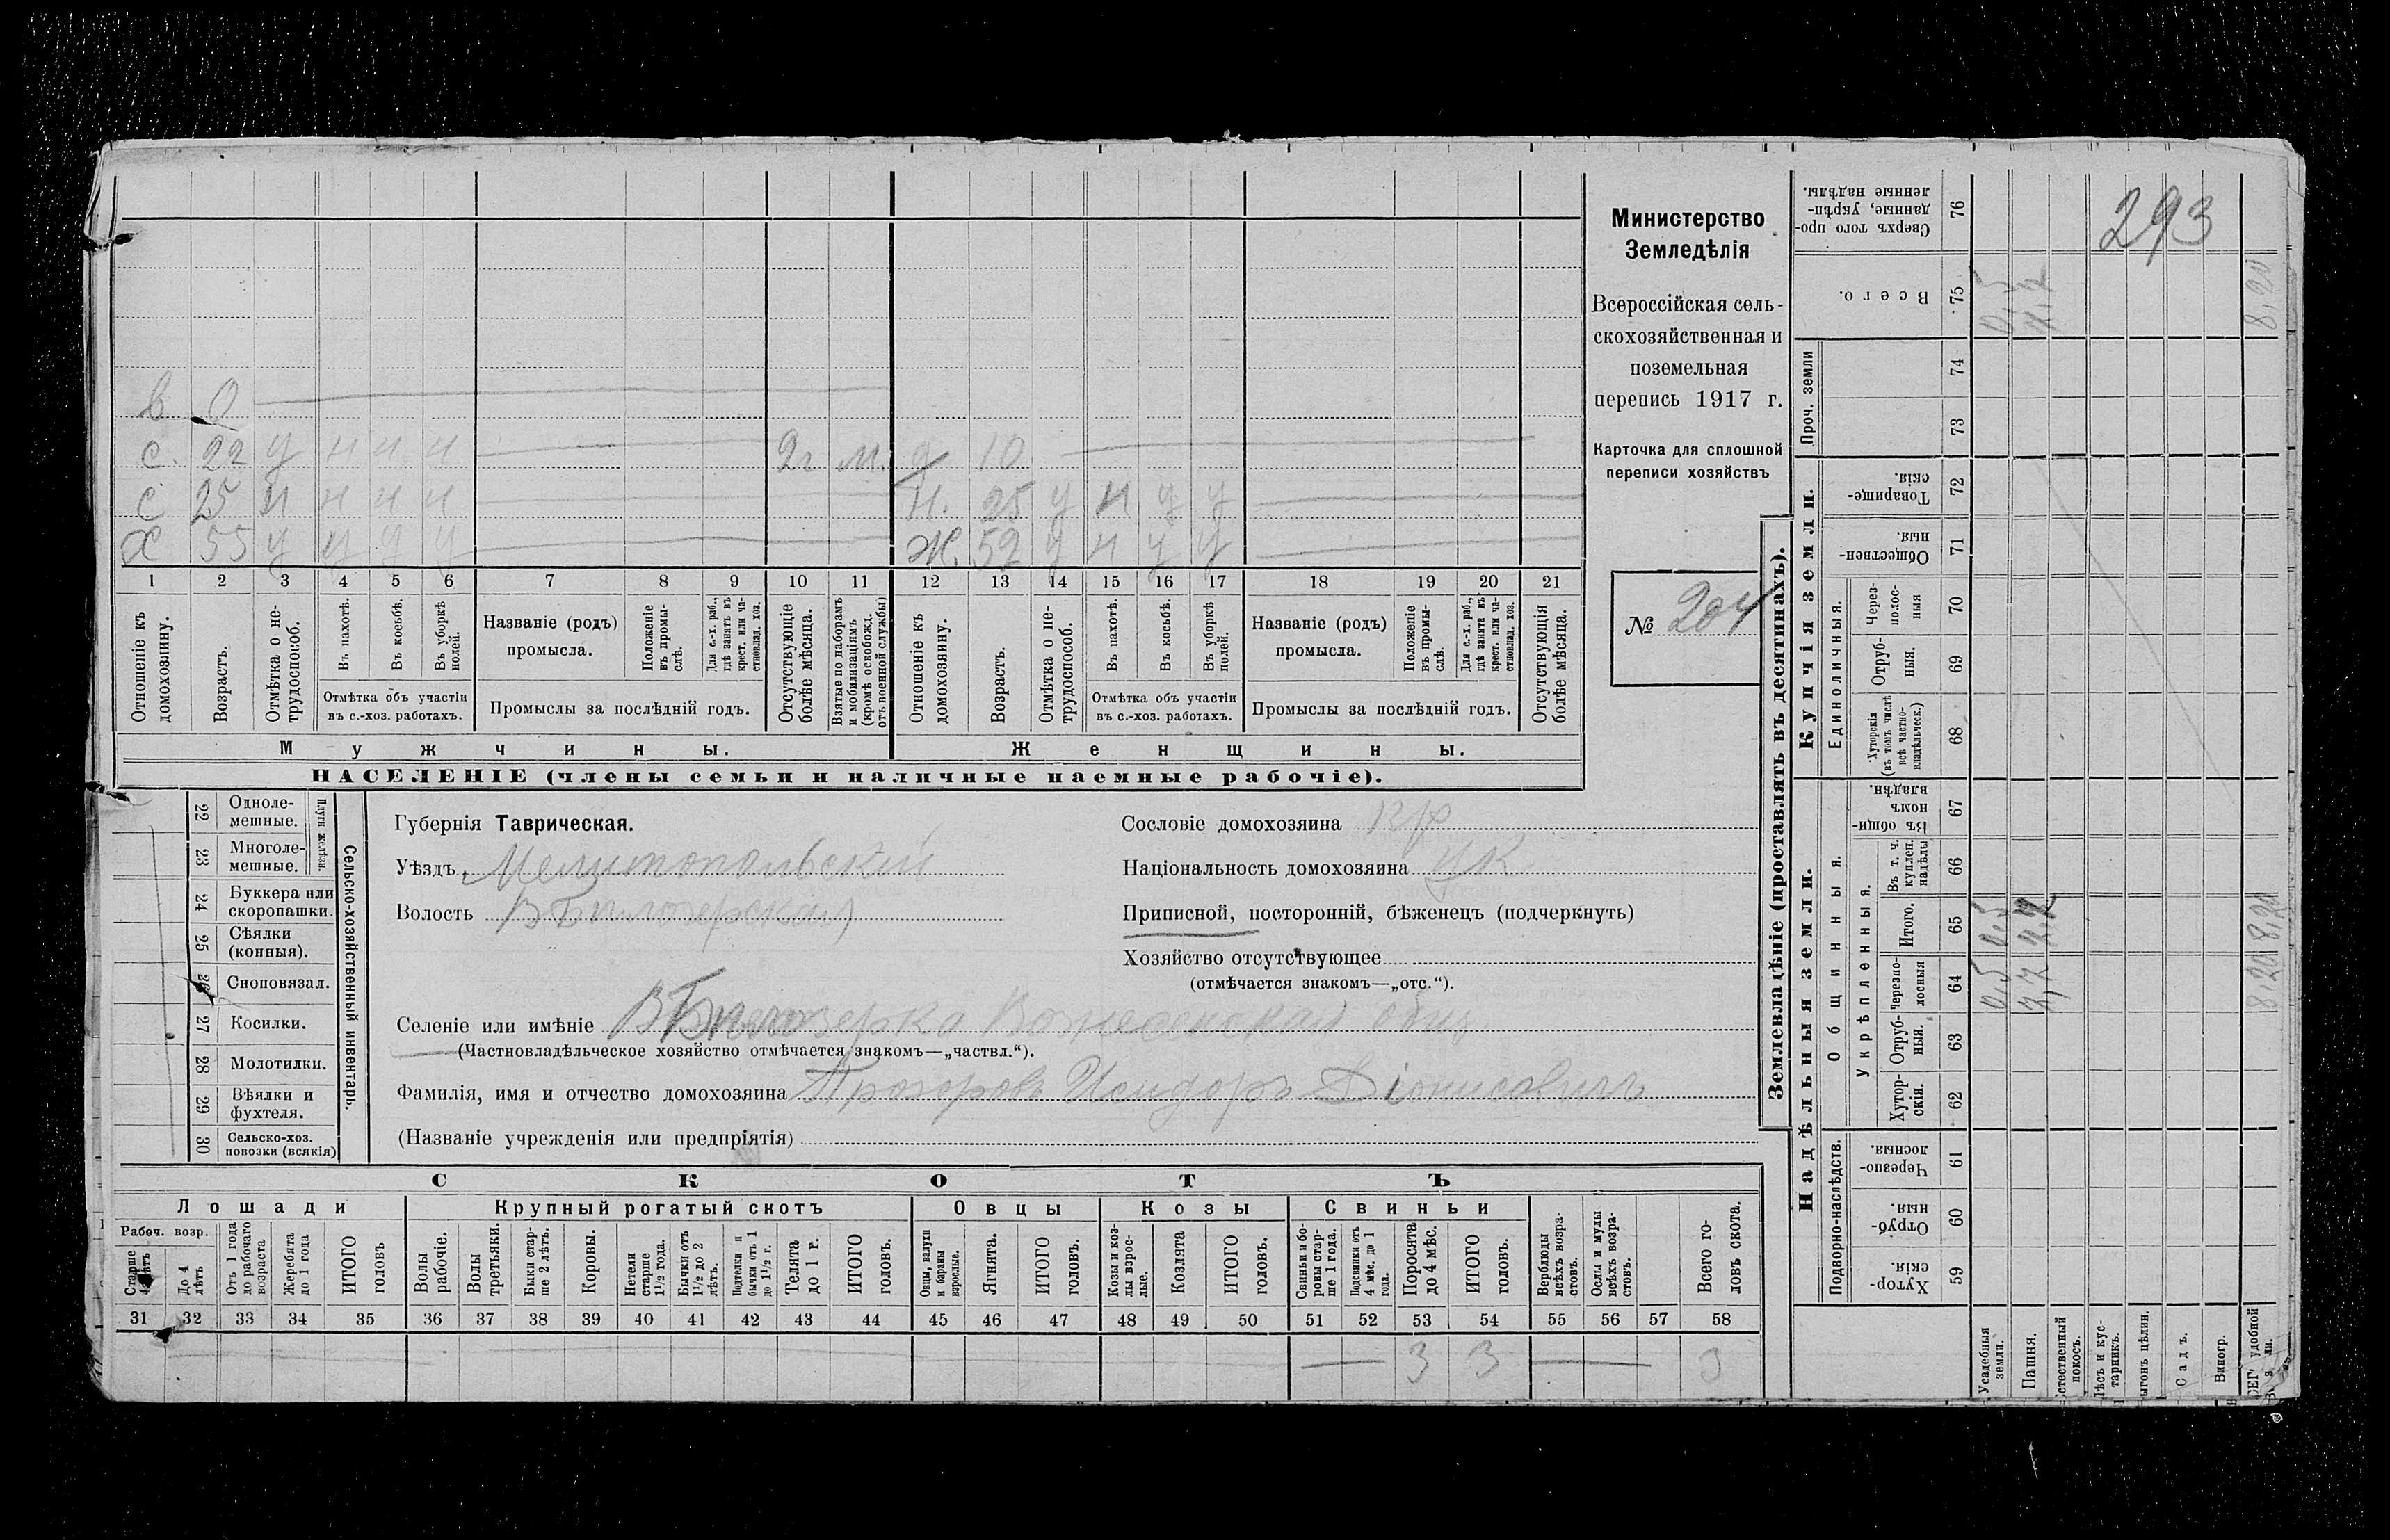 293
Министерство
Земледѣлія
Всероссійская сель-
скохозяйственная и
поземельная
перепись 1917 г.
Карточка для сплошной
переписи хозяйствъ
№ 204
в 0
с. 22 у н н н 2г м. д 10
с 25 н н н н н. 25 у н у у
х 55 у у у у ж. 52 у н у у
1 2 3 4 5 6 7 8 9 10 11 12 13 14 15 16 17 18 19 20 21
Отношеніе къ домохозяину.
Возрастъ.
Отмѣтка о не-трудоспособ.
Въ пахотѣ.
Въ косьбѣ.
Въ уборкѣ полей.
Отмѣтка объ участіи
въ с.-хоз. работахъ.
Названіе (родъ)
промысла.
Положеніе въ промы-слѣ.
Для с.-х. раб., гдѣ занятъ въ крест. или ча-стновлад. хоз.
Промыслы за послѣдній годъ.
Отсутствующіе болѣе мѣсяца.
Взятые по наборамъ и мобилизаціямъ (кромѣ освобожд. отъ военной службы)
Отношеніе къ домохозяину.
Возрастъ.
Отмѣтка о не-трудоспособ.
Въ пахотѣ.
Въ косьбѣ.
Въ уборкѣ полей.
Отмѣтка объ участіи
въ с.-хоз. работахъ.
Названіе (родъ)
промысла.
Положеніе въ промы-слѣ.
Для с.-х. раб., гдѣ занята въ крест. или ча-стновлад. хоз.
Промыслы за послѣдній годъ.
Отсутствующія болѣе мѣсяца.
Мужчины.
Женщины.
НАСЕЛЕНІЕ (члены семьи и наличные наемные рабочіе).
Сельско-хозяйственный инвентарь.
Плуги желѣзн.
22 Одноле-мешные.
23 Многоле-мешные.
24 Буккера или скоропашки.
25 Сѣялки (конныя).
26 Сноповязал.
27 Косилки.
28 Молотилки.
29 Вѣялки и фухтеля.
30 Сельско-хоз. повозки (всякія)
Губернія Таврическая.
Уѣздъ Мелитопольскій
Волость ВБѣлозерская
Селеніе или имѣніе ВБѣлозерка Вознесенская общ.
(Частновладѣльческое хозяйство отмѣчается знакомъ—„частвл.“).
Фамилія, имя и отчество домохозяина Прозоровъ Исидоръ Діонисовичъ
(Названіе учрежденія или предпріятія)
Сословіе домохозяина кр
Національность домохозяина ук
Приписной, посторонній, бѣженецъ (подчеркнуть)
Хозяйство отсутствующее
(отмѣчается знакомъ—„отс.“).
СКОТЪ
Лошади
Крупный рогатый скотъ
Овцы
Козы
Свиньи
Рабоч. возр.
Старше 4 лѣтъ
До 4 лѣтъ
Отъ 1 года до рабочаго возраста
Жеребята до 1 года
ИТОГО головъ
Волы рабочіе.
Волы третьяки.
Быки стар-ше 2 лѣтъ.
Коровы.
Нетели старше 1½ года.
Бычки отъ 1½ до 2 лѣтъ.
Подтелки и бычки отъ 1 до 1½ г.
Телята до 1 г.
ИТОГО головъ.
Овцы, валухи и бараны взрослые.
Ягнята.
ИТОГО головъ.
Козы и коз-лы взрос-лые.
Козлята
ИТОГО головъ.
Свиньи и бо-ровы стар-ше 1 года.
Подсвинки отъ 4 мѣс. до 1 года.
Поросята до 4 мѣс.
ИТОГО головъ.
Верблюды всѣхъ возра-стовъ.
Ослы и мулы всѣхъ возра-стовъ.
Всего го-ловъ скота.
31 32 33 34 35 36 37 38 39 40 41 42 43 44 45 46 47 48 49 50 51 52 53 54 55 56 57 58
3 3 3
Землевладѣніе (проставлять въ десятинахъ).
Надѣльныя земли.
Купчія земли.
Проч. земли
Подворно-наслѣдств.
Общинныя.
Укрѣпленныя.
Единоличныя.
Сверхъ того про-данные, укрѣп-ленные надѣлы. 76
Всего. 75 0,5 7,7 8,20
74
73
Товарище-скія. 72
Обществен-ныя. 71
Через-полос-ныя 70
Отруб-ныя. 69
Хуторскія (въ томъ числѣ всѣ частно-владѣльческ.) 68
Въ общи-номъ владѣн. 67
Въ т. ч. куплен. надѣлы 66
Итого. 65 0,5 7,7 8,20
Черезпо-лосныя 64 0,5 7,7 8,20
Отруб-ныя. 63
Хутор-скія. 62
Черезпо-лосныя. 61
Отруб-ныя. 60
Хутор-скія. 59
Усадебныя земли.
Пашня.
стественный покосъ.
Лѣсъ и кус-тарникъ.
ыгонъ цѣлин.
Садъ.
Виногр.
удобной